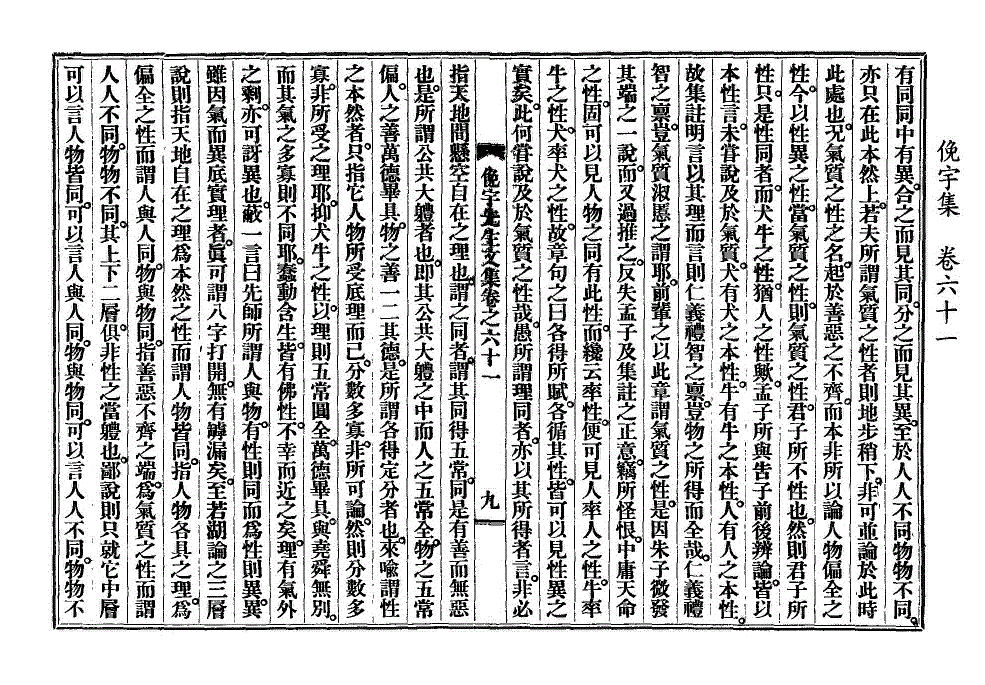 俛宇集 卷六十一
有同同中有異合之而見其同分之而見其異至於人人不同物物不同
亦只在此本然上若夫所謂氣質之性者則地步稍下非可並論於此時
此處也况氣質之性之名起於善惡之不齊而本非所以論人物偏全之
性今以性異之性當氣質之性則氣質之性君子所不性也然則君子所
性只是性同者而犬牛之性猶人之性歟孟子所與告子前後辨論皆以
本性言未甞說及於氣質犬有犬之本性牛有牛之本性人有人之本性
故集註明言以其理而言則仁義禮智之稟豈物之所得而全哉仁義禮
智之稟豈氣質淑慝之謂耶前輩之以此章謂氣質之性是因朱子微發
其端之一說而又過推之反失孟子及集註之正意竊所怪恨中庸天命
之性固可以見人物之同有此性而纔云率性便可見人率人之性牛率
牛之性犬率犬之性故章句之曰各得所賦各循其性皆可以見性異之
實矣此何甞說及於氣質之性哉愚所謂理同者亦以其所得者言非必
俛宇先生文集卷之六十一 九
指天地間懸空自在之理也謂之同者謂其同得五常同是有善而無惡
也是所謂公共大軆者也卽其公共大軆之中而人之五常全物之五常
偏人之善萬德畢具物之善一二其德是所謂各得定分者也來喩謂性
之本然者只指它人物所受底理而已分數多寡非所可論然則分數多
寡非所受之理耶抑犬牛之性以理則五常圓全萬德畢具與堯舜無別
而其氣之多寡則不同耶蠢動含生皆有佛性不幸而近之矣理有氣外
之剩亦可訝異也蔽一言曰先師所謂人與物有性則同而爲性則異異
雖因氣而異底實理者眞可謂八字打開無有罅漏矣至若湖論之三層
說則指天地自在之理爲本然之性而謂人物皆同指人物各具之理爲
偏全之性而謂人與人同物與物同指善惡不齊之端爲氣質之性而謂
人人不同物物不同其上下二層俱非性之當軆也鄙說則只就它中層
可以言人物皆同可以言人與人同物與物同可以言人人不同物物不